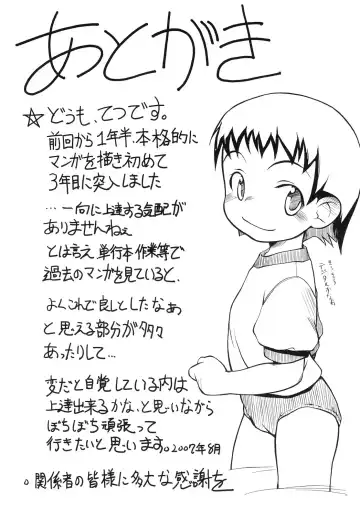 あとがき
☆どうも、てつです。
前回から1年半、本格的に
マンガを描き初めて
3年目に突入しました
…一向に上達する気配が
ありませんねぇ
とは言え単行本作業等で
過去のマンガを見ていると、
よくこれで良しとしたなぁ
と思える部分が多々
あったりして…
変だと自覚している内は
上達出来るかな、と思いながら
ぼちぼち頑張って
行きたいと思います。2007年8月
。関係者の皆様に多大な感謝を